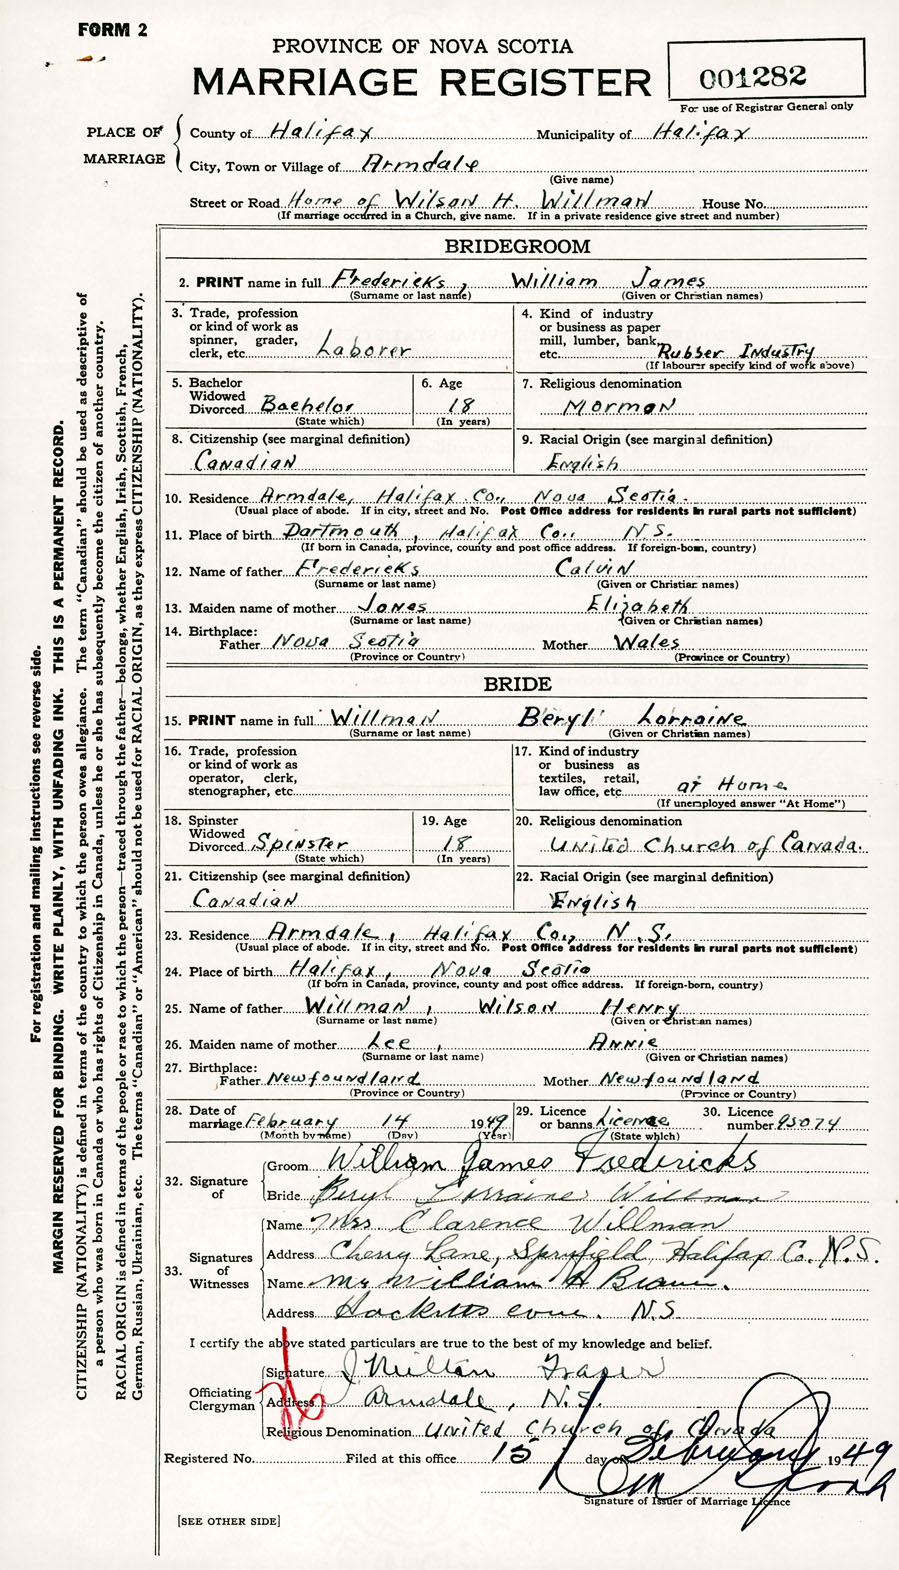 FORM 2
PROVINCE OF NOVA SCOTIA
MARRIAGE REGISTER
001282
For use of Registrar General only
PLACE OF MARRIAGE
County of Halifax Municipality of Halifax
City, Town or Village of Armdale
(Give name)
Street or Road Home of Wilson H. Willman House No.
(If marriage occurred in a Church, give name. If in a private residence give street and number)
BRIDEGROOM
2. PRINT name in full Fredericks, William James
(Surname or last name) (Given or Christian names)
3. Trade, profession or kind of work as spinner, grader, clerk, etc. Laborer
4. Kind of industry or business as paper mill, lumber, bank, etc. Rubber Industry
(If labourer specify kind of work above)
5. Bachelor Widowed Divorced Bachelor
(State which)
6. Age 18
(In years)
7. Religious denomination
Mormon
8. Citizenship (see marginal definition)
Canadian
9. Racial Origin (see marginal definition)
English
10. Residence Armdale, Halifax Co., Nova Scotia.
(Usual place of abode. If in city, street and No. Post Office address for residents in rural parts not sufficient)
11. Place of birth Dartmouth, Halifax Co., N.S.
(If born in Canada, province, county and post office address. If foreign-born, country)
12. Name of father Fredericks Calvin
(Surname or last name) (Given or Christian names)
13. Maiden name of mother Jones Elizabeth
(Surname or last name) (Given or Christian names)
14. Birthplace:
Father Nova Scotia Mother Wales
(Province or Country) (Province or Country)
BRIDE
15. PRINT name in full Willman Beryl Lorraine
(Surname or last name) (Given or Christian names)
16. Trade, profession or kind of work as operator, clerk, stenographer, etc.
17. Kind of industry or business as textiles, retail, law office, etc. at Home
(If unemployed answer "At Home")
18. Spinster Widowed Divorced Spinster
(State which)
19. Age 18
(In years)
20. Religious denomination
United Church of Canada.
21. Citizenship (see marginal definition)
Canadian
22. Racial Origin (see marginal definition)
English
23. Residence Armdale, Halifax Co., N.S.
(Usual place of abode. If in city, street and No. Post Office address for residents in rural parts not sufficient)
24. Place of birth Halifax, Nova Scotia
(If born in Canada, province, county and post office address. If foreign-born, country)
25. Name of father Willman, Wilson Henry
(Surname or last name) (Given or Christian names)
26. Maiden name of mother Lee, Annie
(Surname or last name) (Given or Christian names)
27. Birthplace:
Father Newfoundland Mother Newfoundland
(Province or Country) (Province or Country)
28. Date of marriage February 14 1949
(Month by name) (Day) (Year)
29. Licence or banns Licence
(State which)
30. Licence number 95074
32. Signature of
Groom William James Fredericks
Bride Beryl Lorraine Willman
33. Signatures of Witnesses
Name Mrs Clarence Willman
Address Cherry Lane, Spryfield Halifax Co. N.S.
Name Mr William H Braun.
Address Hacketts cove. N.S
I certify the above stated particulars are true to the best of my knowledge and belief.
Officiating Clergyman
Signature J Milton Fraser
Address Armdale, N.S.
Religious Denomination United Church of Canada
Registered No. Filed at this office 15 day of February 1949
Signature of Issuer of Marriage Licence
[SEE OTHER SIDE]
For registration and mailing instructions see reverse side.
MARGIN RESERVED FOR BINDING. WRITE PLAINLY, WITH UNFADING INK. THIS IS A PERMANENT RECORD.
CITIZENSHIP (NATIONALITY) is defined in terms of the country to which the person owes allegiance. The term "Canadian" should be used as descriptive of
a person who was born in Canada or who has rights of Citizenship in Canada, unless he or she has subsequently become the citizen of another country.
RACIAL ORIGIN is defined in terms of the people or race to which the person—traced through the father—belongs, whether English, Irish, Scottish, French,
German, Russian, Ukrainian, etc. The terms "Canadian" or "American" should not be used for RACIAL ORIGIN, as they express CITIZENSHIP (NATIONALITY).